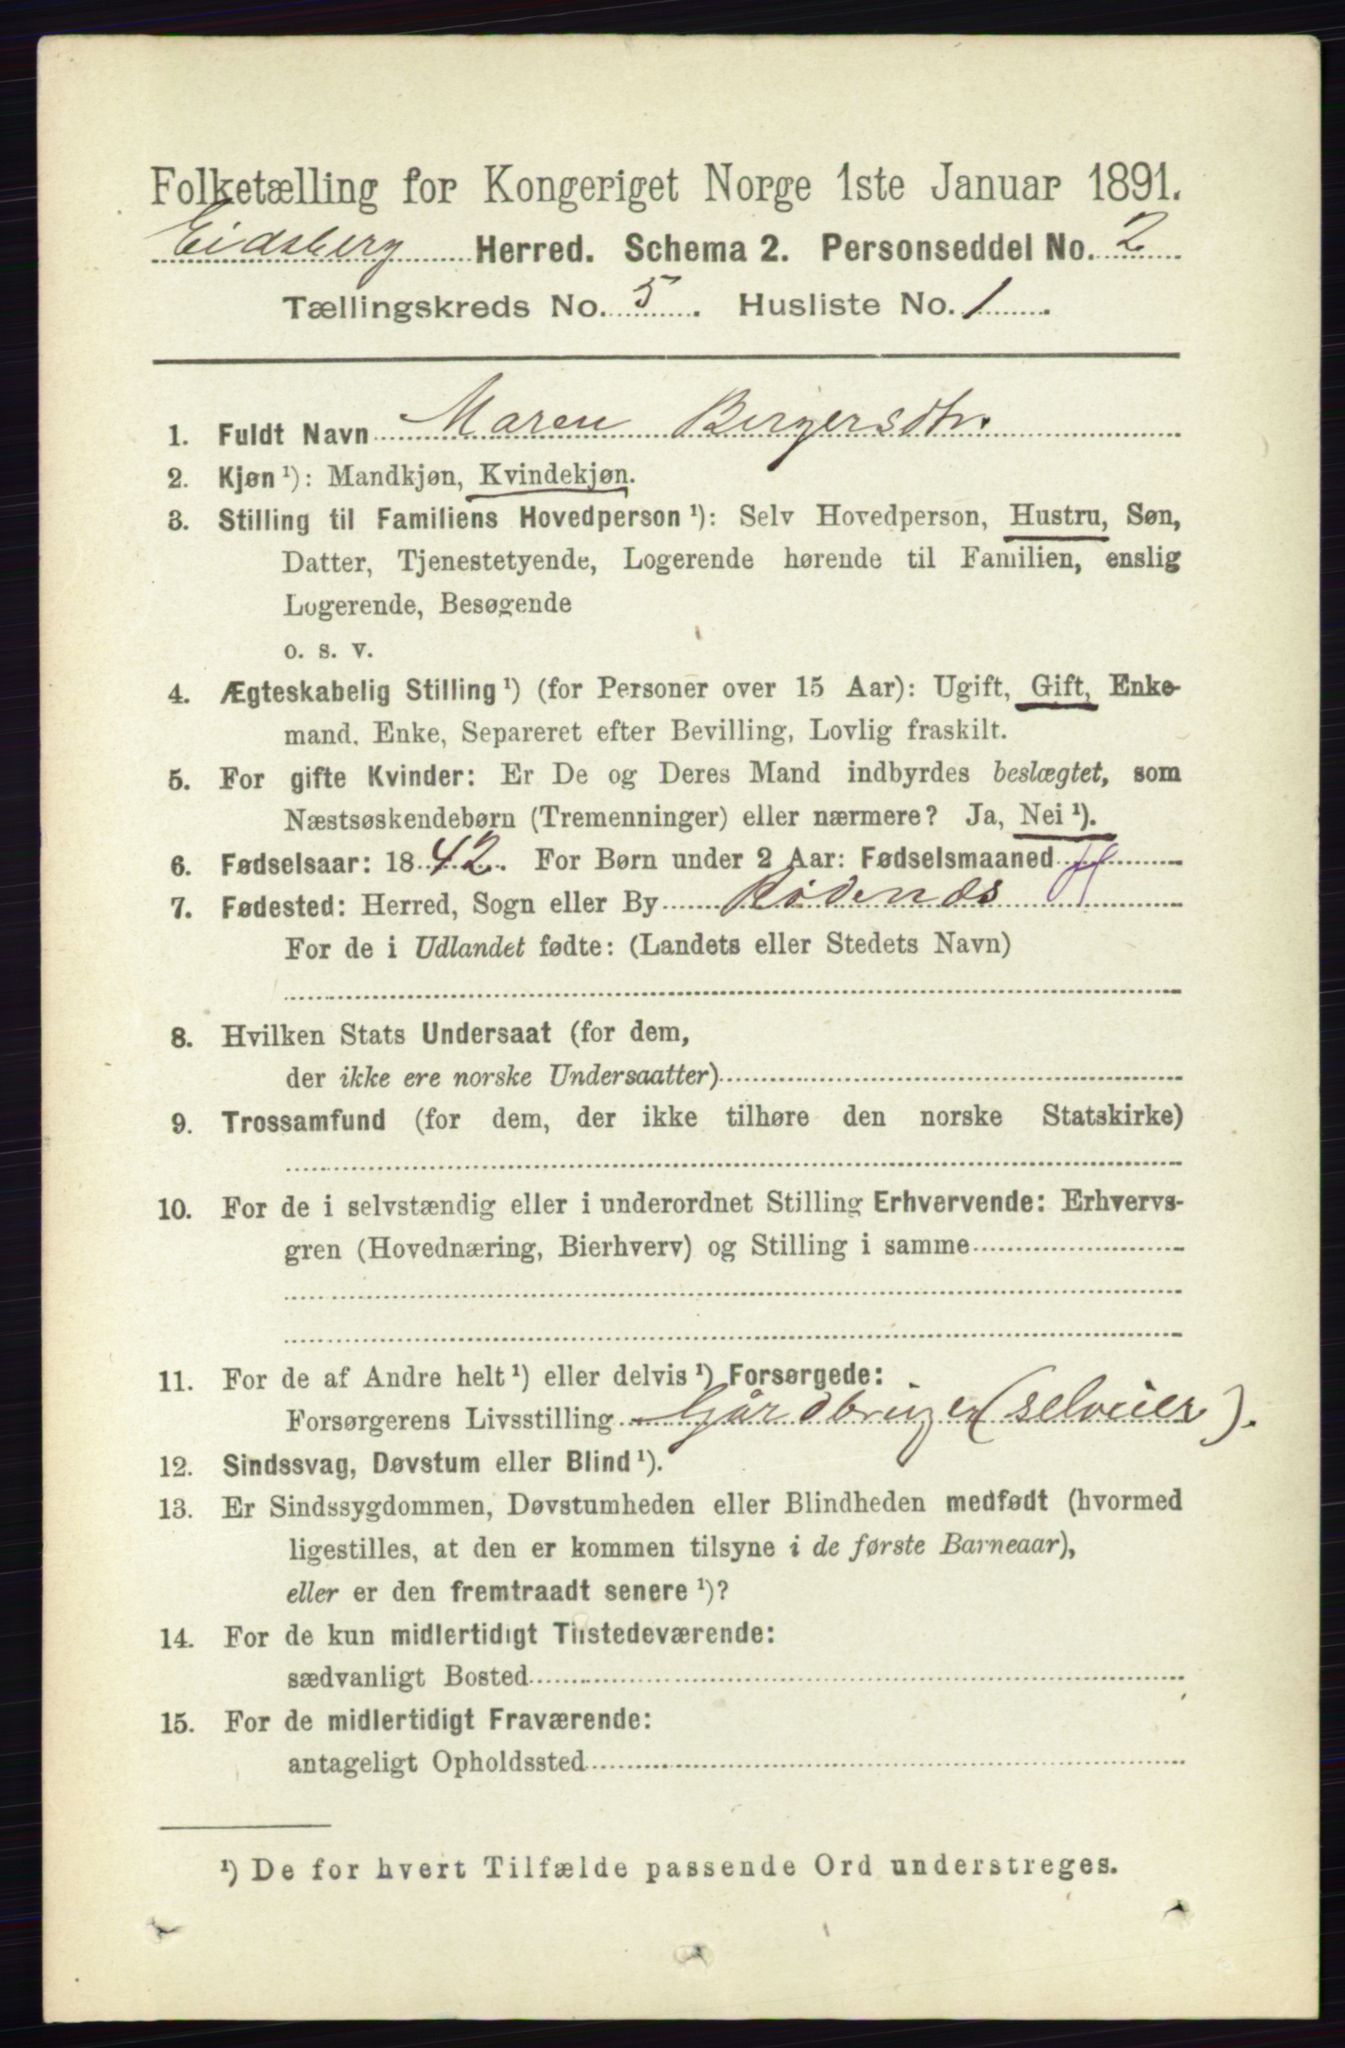 Folketælling for Kongeriget Norge 1ste Januar 1891.
Eidsberg Herred. Schema 2. Personseddel No. 2
Tællingskreds No. 5. Husliste No. 1.
1. Fuldt Navn Maren Birgersdtr.
2. Kjøn ¹): Mandkjøn, Kvindekjøn.
3. Stilling til Familiens Hovedperson ¹): Selv Hovedperson, Hustru, Søn,
Datter, Tjenestetyende, Logerende hørende til Familien, enslig
Logerende, Besøgende
o. s. v.
4. Ægteskabelig Stilling ¹) (for Personer over 15 Aar): Ugift, Gift, Enke-
mand, Enke, Separeret efter Bevilling, Lovlig fraskilt.
5. For gifte Kvinder: Er De og Deres Mand indbyrdes beslægtet, som
Næstsøskendebørn (Tremenninger) eller nærmere? Ja, Nei ¹).
6. Fødselsaar: 1842. For Børn under 2 Aar: Fødselsmaaned
7. Fødested: Herred, Sogn eller By Rødenæs
For de i Udlandet fødte: (Landets eller Stedets Navn)
8. Hvilken Stats Undersaat (for dem,
der ikke ere norske Undersaatter)
9. Trossamfund (for dem, der ikke tilhøre den norske Statskirke)
10. For de i selvstændig eller i underordnet Stilling Erhvervende: Erhvervs-
gren (Hovednæring, Bierhverv) og Stilling i samme
11. For de af Andre helt ¹) eller delvis ¹) Forsørgede:
Forsørgerens Livsstilling Gårdbruger (selveier).
12. Sindssvag, Døvstum eller Blind ¹).
13. Er Sindssygdommen, Døvstumheden eller Blindheden medfødt (hvormed
ligestilles, at den er kommen tilsyne i de første Barneaar),
eller er den fremtraadt senere ¹)?
14. For de kun midlertidigt Tilstedeværende:
sædvanligt Bosted
15. For de midlertidigt Fraværende:
antageligt Opholdssted
¹) De for hvert Tilfælde passende Ord understreges.